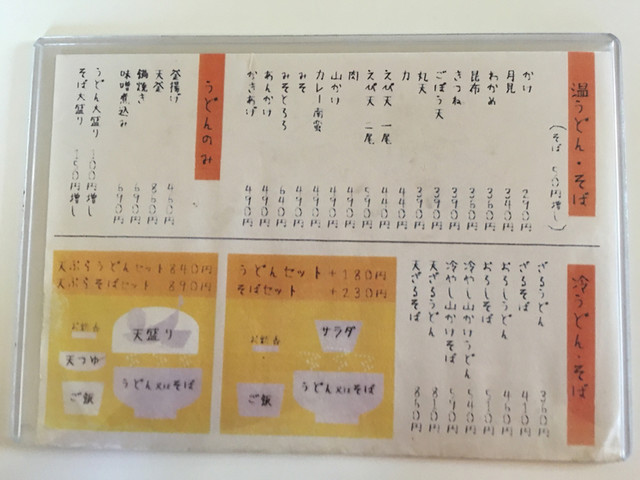 温うどん・そば
(そば 50円増し)
かけ 290円
月見 340円
わかめ 360円
昆布 360円
きつね 390円
ごぼう天 390円
丸天 390円
力 440円
えび天 一尾 440円
えび天 二尾 590円
肉 490円
山かけ 490円
カレー南蛮 490円
みそ 490円
みそとろろ 640円
あんかけ 490円
かきあげ 490円
うどんのみ
釜揚げ 460円
天釜 860円
鍋焼き 690円
味噌煮込み 690円
うどん大盛り 100円増し
そば大盛り 150円増し
冷うどん・そば
ざるうどん 360円
ざるそば 410円
おろしうどん 460円
おろしそば 510円
冷やし山かけうどん 540円
冷やし山かけそば 590円
天ざるうどん 810円
天ざるそば 860円
うどんセット +180円
そばセット +230円
お新香
サラダ
ご飯
うどん又はそば
天ぷらうどんセット 840円
天ぷらそばセット 890円
お新香
天盛り
天つゆ
ご飯
うどん又はそば